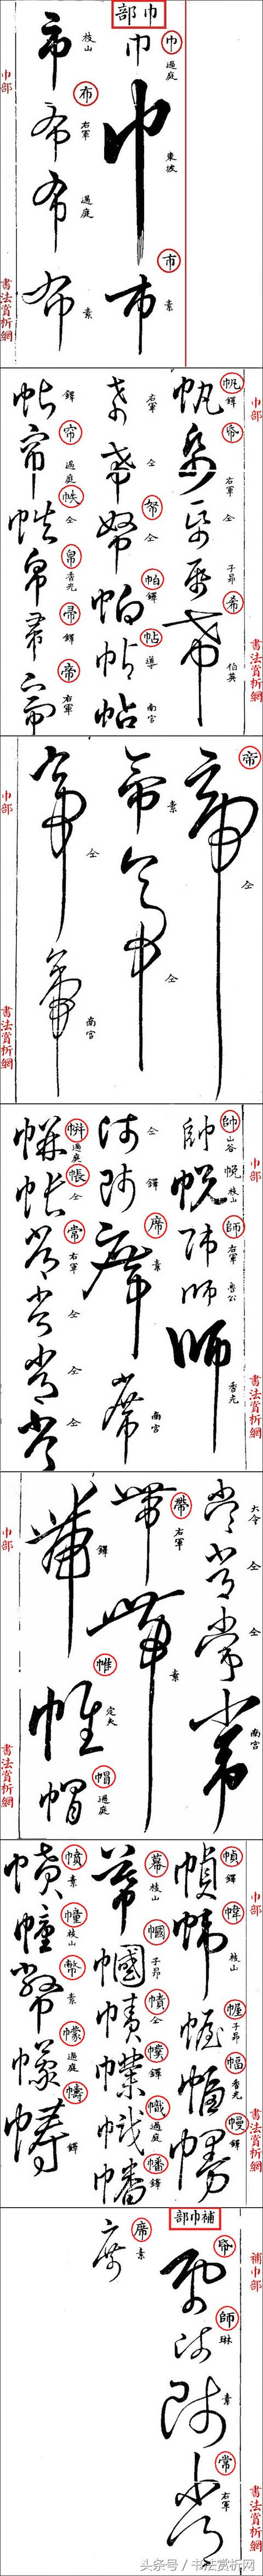 巾部
巾 過庭 東坡 市 素
枝山 布 右軍 過庭 素
巾部 書法賞析網
帆 鐸 帋 右軍 仝 子昂 希 伯英
右軍 仝 帑 仝 帕 鐸 帖 導 南宮
鐸 帘 過庭 帙 仝 帛 香光 帚 鐸 帝 右軍
巾部 書法賞析網
帝 仝
素 仝
仝 南宮
巾部 書法賞析網
帥 山谷 帨 枝山 師 右軍 魯公 香光
仝 鐸 席 素 南宮
帡 過庭 帳 仝 常 右軍 仝 仝 仝
巾部 書法賞析網
大令 仝 仝 南宮
帶 右軍 素
鐸 帷 定夫 帽 過庭
巾部 書法賞析網
幀 鐸 幃 枝山 幄 子昂 幅 香光 幔 鐸
幕 枝山 幗 子昂 幘 仝 幞 鐸 幟 過庭 幡 鐸
幩 素 幢 枝山 幣 素 幪 過庭 幬 鐸
巾部 書法賞析網
補巾部
帋 師 琳 素 常 右軍
席 素
補巾部 書法賞析網
头条号 / 书法赏析网